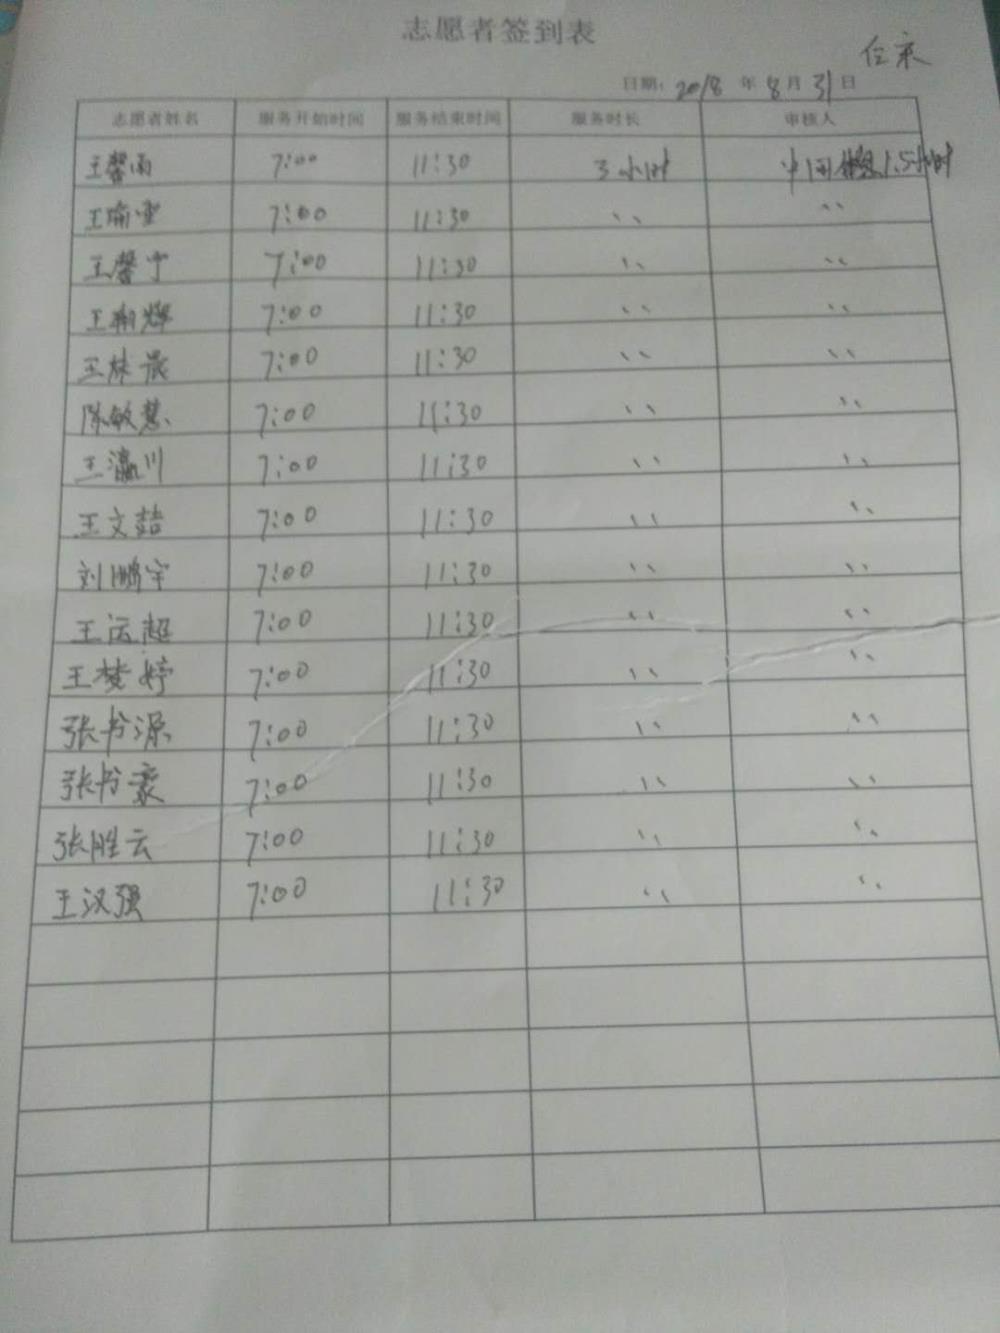 志愿者签到表
日期：2018 年 8 月 31 日
志愿者姓名 服务开始时间 服务结束时间 服务时长 审核人
王馨雨 7:00 11:30 3小时 中间休息1.5小时
王瑜雯 7:00 11:30 、、 、、
王馨宁 7:00 11:30 、、 、、
王翔辉 7:00 11:30 、、 、、
王林晨 7:00 11:30 、、 、、
陈敏慧 7:00 11:30 、、 、、
王瀛川 7:00 11:30 、、 、、
王文喆 7:00 11:30 、、 、、
刘鹏宇 7:00 11:30 、、 、、
王运超 7:00 11:30 、、 、、
王梦婷 7:00 11:30 、、 、、
张书源 7:00 11:30 、、 、、
张书豪 7:00 11:30 、、 、、
张胜云 7:00 11:30 、、 、、
王汉强 7:00 11:30 、、 、、